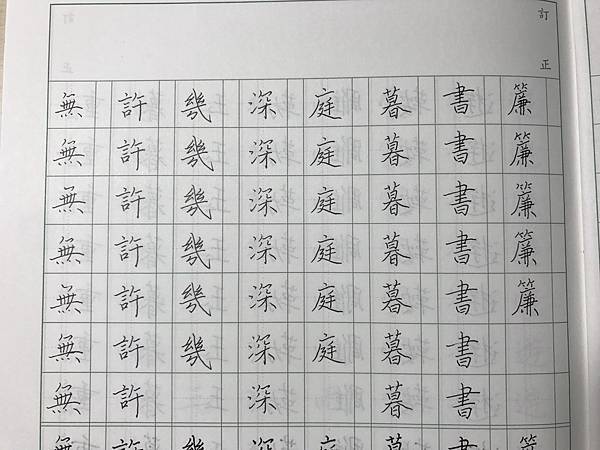 訂正
簾簾簾簾簾簾
書書書書書書書書
暮暮暮暮暮暮暮暮
庭庭庭庭庭庭庭
深深深深深深深深
幾幾幾幾幾幾幾
許許許許許許許許
無無無無無無無無